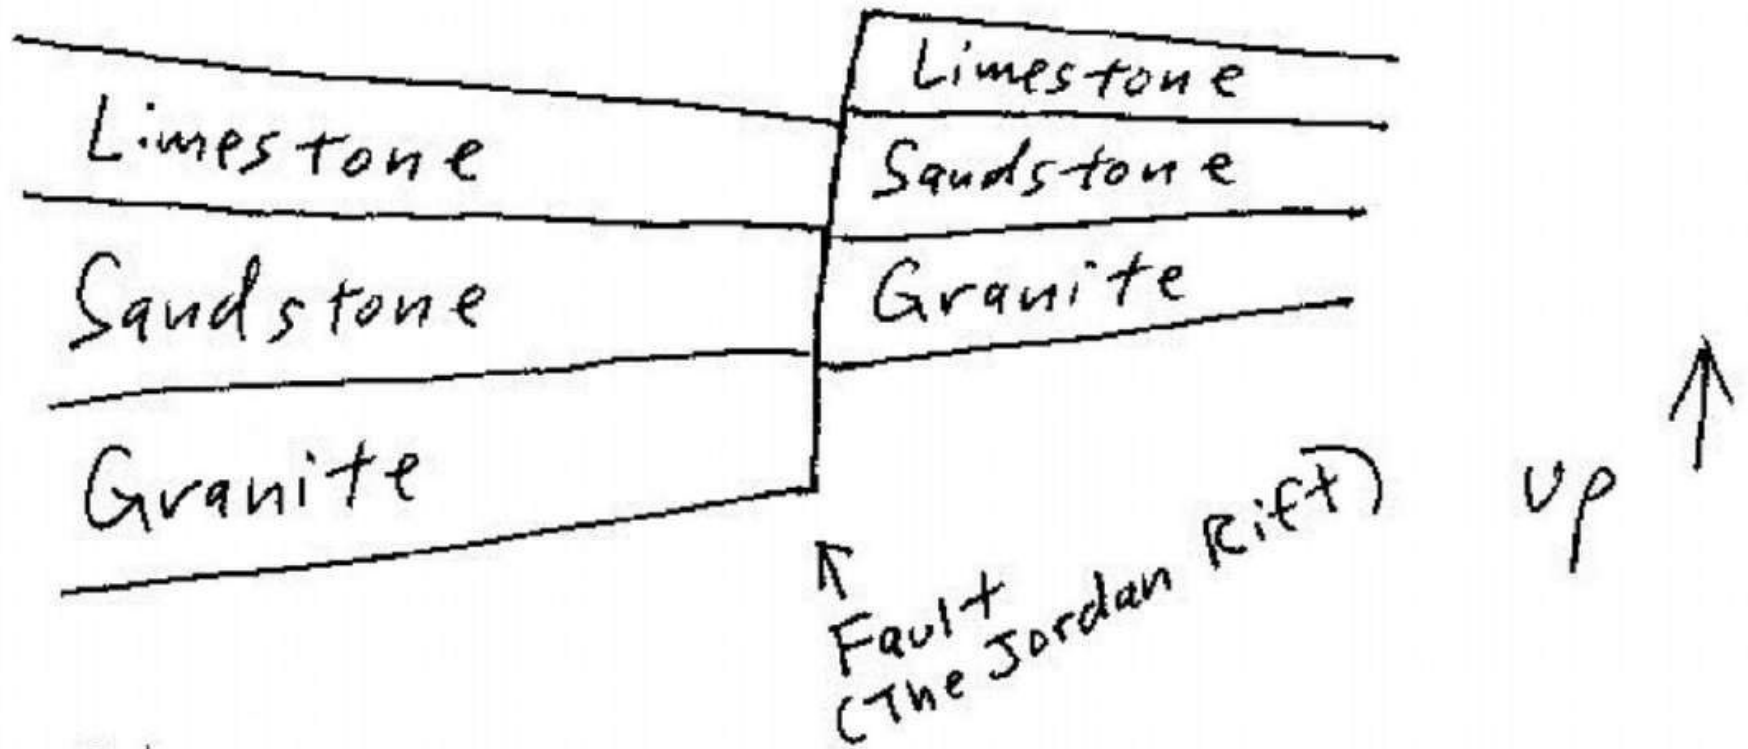 Limestone
Sandstone
Granite
Limestone
Sandstone
Granite
Fault
(The Jordan Rift)
Up